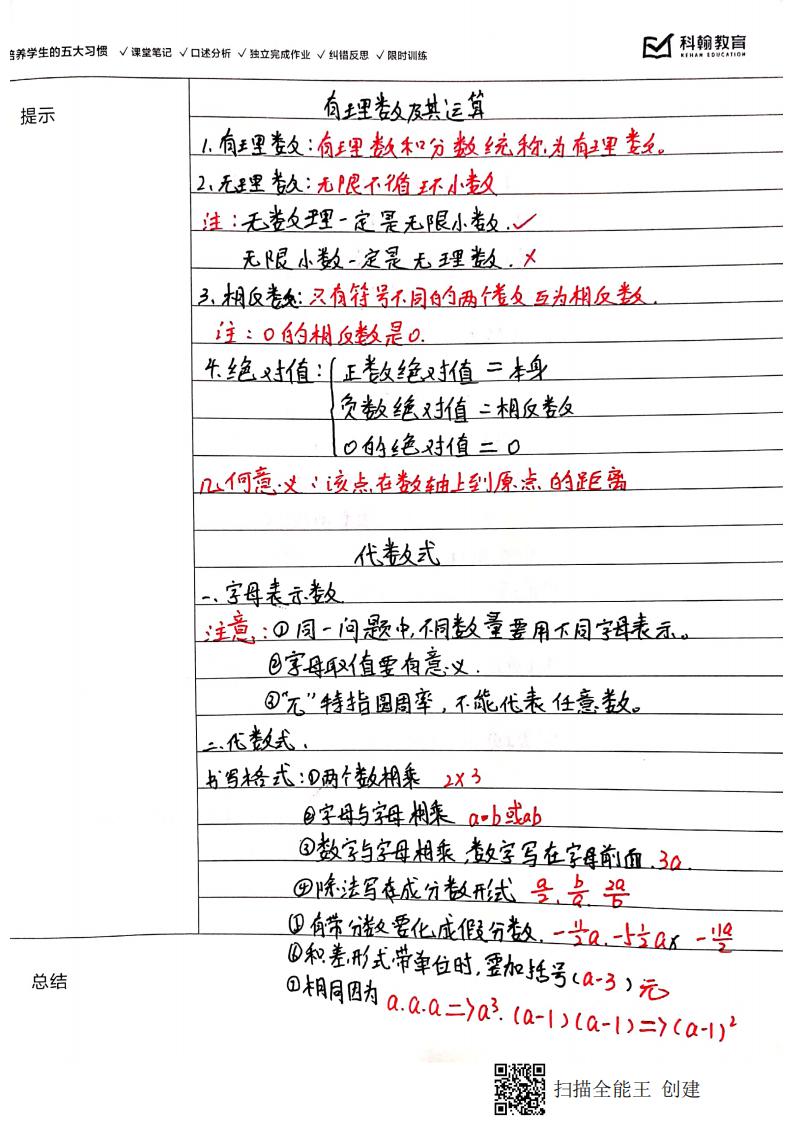 培养学生的五大习惯 ✓课堂笔记 ✓口述分析 ✓独立完成作业 ✓纠错反思 ✓限时训练
科翰教育
KEHAN EDUCATION
提示
有理数及其运算
1、有理数：有理数和分数统称为有理数。
2、无理数：无限不循环小数
注：无数理一定是无限小数.✓
无限小数一定是无理数.×
3、相反数：只有符号不同的两个数互为相反数.
注：0的相反数是0.
4.绝对值：{正数绝对值=本身
负数绝对值=相反数
0的绝对值=0
几何意义：该点在数轴上到原点的距离
代数式
一、字母表示数
注意：①同一问题中,不同数量要用不同字母表示。
②字母取值要有意义.
③“π”特指圆周率，不能代表任意数。
二、代数式、
书写格式：①两个数相乘 2×3
②字母与字母相乘 a•b或ab
③数字与字母相乘,数字写在字母前面.3a.
④除法写在成分数形式 a/2. b/a. 2a/b
⑤有带分数要化成假分数. -11/2a. -5 1/2a× -11a/2
⑥积差形式带单位时,要加括号(a-3)元
⑦相同因为 a.a.a=>a³. (a-1)(a-1)=>(a-1)²
总结
扫描全能王 创建